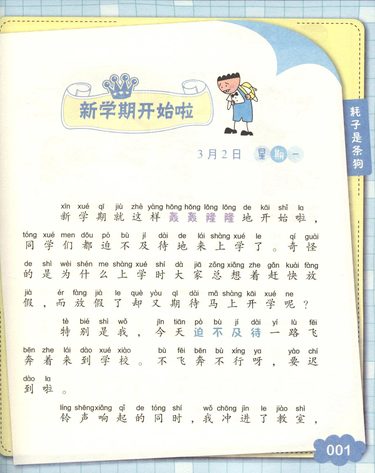 新学期开始啦
耗子是条狗
3月2日 星期一
xīn xué qī jiù zhè yàng hōng hōng lōng lōng de kāi shǐ la
新学期就这样轰轰隆隆地开始啦，
tóng xué men dōu pò bù jí dài de lái shàng xué le qí guài
同学们都迫不及待地来上学了。奇怪
de shì wèi shén me shàng xué shí dà jiā zǒng xiǎng zhe gǎn kuài fàng
的是为什么上学时大家总想着赶快放
jià ér fàng jià le què yòu qī dài mǎ shàng kāi xué ne
假，而放假了却又期待马上开学呢？
tè bié shì wǒ jīn tiān pò bù jí dài yí lù fēi
特别是我，今天迫不及待一路飞
bēn zhe lái dào xué xiào bù fēi bēn bù xíng ya yào chí
奔着来到学校。不飞奔不行呀，要迟
dào la
到啦。
líng shēng xiǎng qǐ de tóng shí wǒ chōng jìn le jiào shì
铃声响起的同时，我冲进了教室，
001